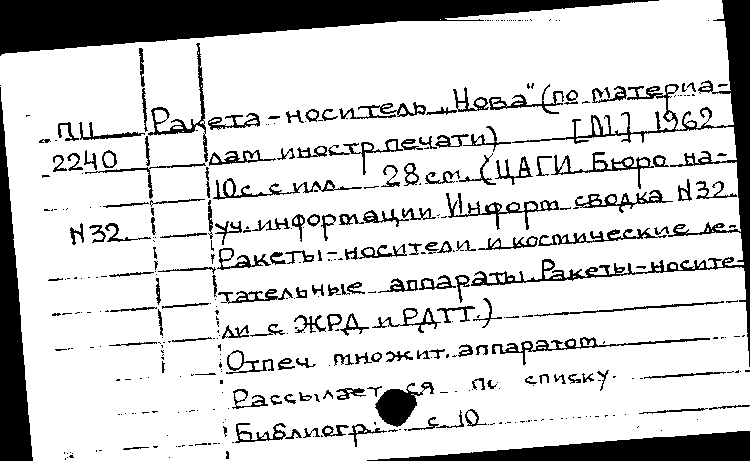 ПЦ Ракета-носитель „Нова" (по материа-
2240 лам иностр печати) [М.], 1962
10с. с илл. 28см. (ЦАГИ. Бюро на-
N32. уч. информации Информ сводка N32.
Ракеты-носители и космические ле-
тательные аппараты. Ракеты-носите-
ли с ЖРД и РДТТ.)
Отпеч множит. аппаратом.
Рассылается по списку.
Библиогр: с 10